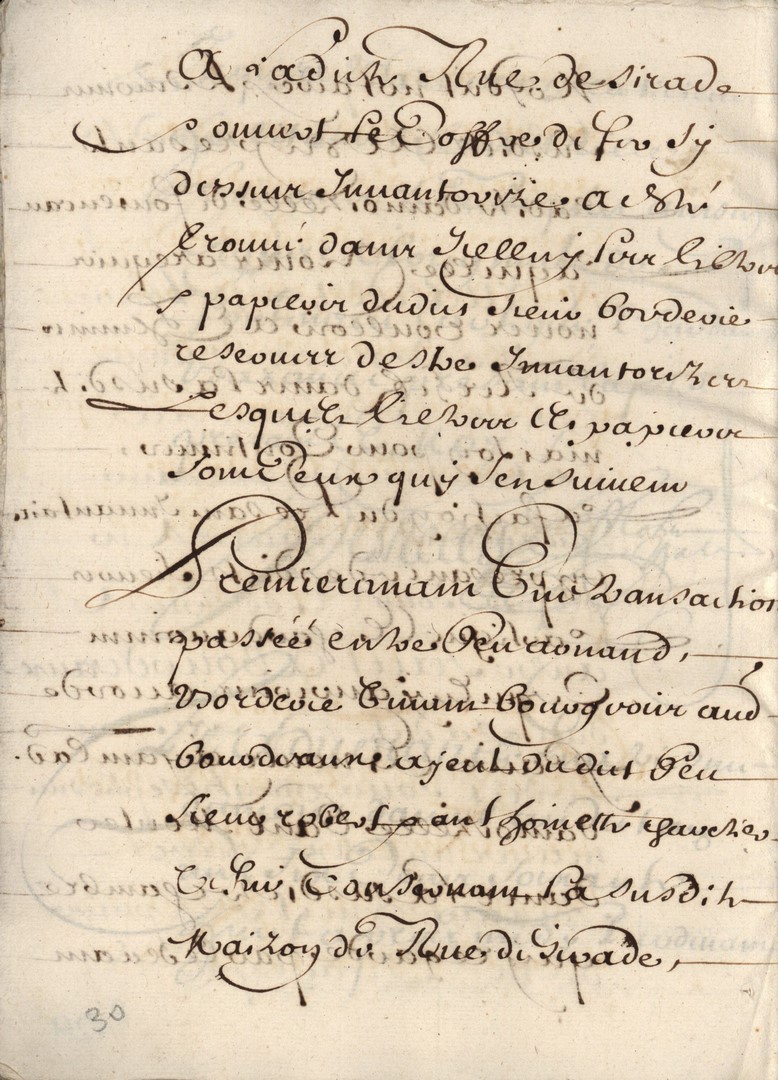 A ladicte Rue de sirade
ouvert Le Coffre de fer sy
dessus Innantorizé a esté
trouvé dans Icelluy Les tiltres
& papiers dudict sieur borderie
restans destre Innantorizes
Lesquels tiltres & papiers
sont Ceux quy sensuivent
Premieremant Une transaction
passée entre feu arnaud
borderie vivant bourgeois aud
bourdeaux ayeul dudict feu
sieur robert & anthoinette gautier
Conservant La susdicte
Maizon de Rue de sirade,
30